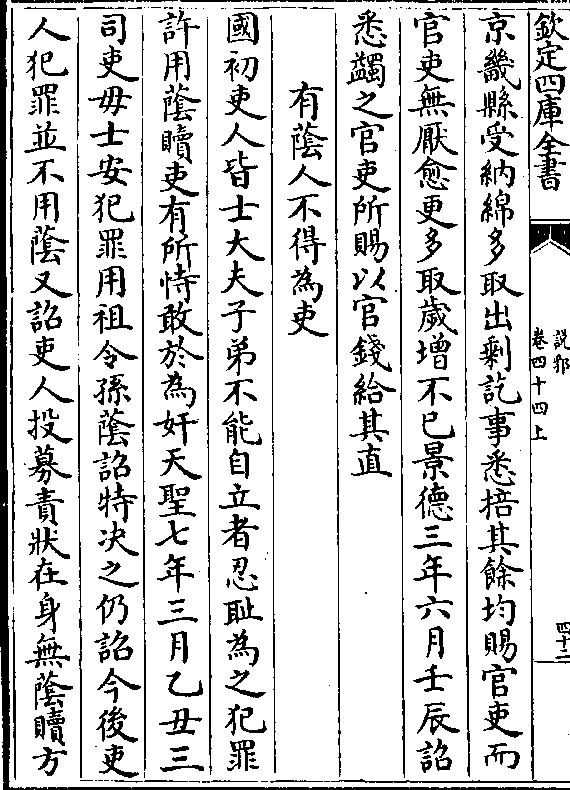 欽定四庫全書
說郛
卷四十四上
四十二
京畿縣受納綿多取出剩訖事悉掊其餘均賜官吏而
官吏無厭愈更多取歲增不已景德三年六月壬辰詔
悉蠲之官吏所賜以官錢給其直
有蔭人不得為吏
國初吏人皆士大夫子弟不能自立者忍耻為之犯罪
許用蔭贖吏有所恃敢於為奸天聖七年三月乙丑三
司吏毋士安犯罪用祖令孫蔭詔特决之仍詔今後吏
人犯罪並不用蔭又詔吏人投募責狀在身無蔭贖方